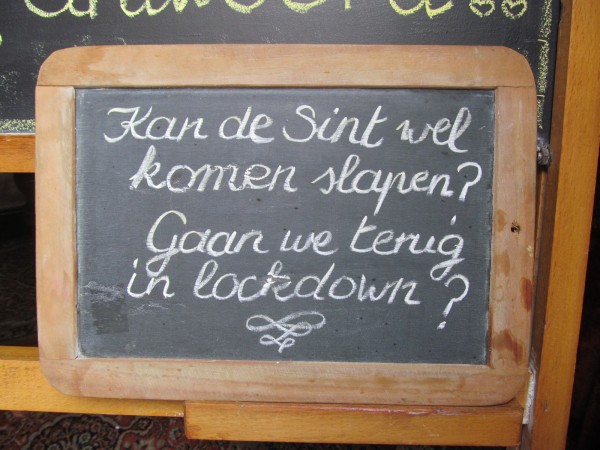 Kan de Sint wel
komen slapen?
Gaan we terug
in lockdown?